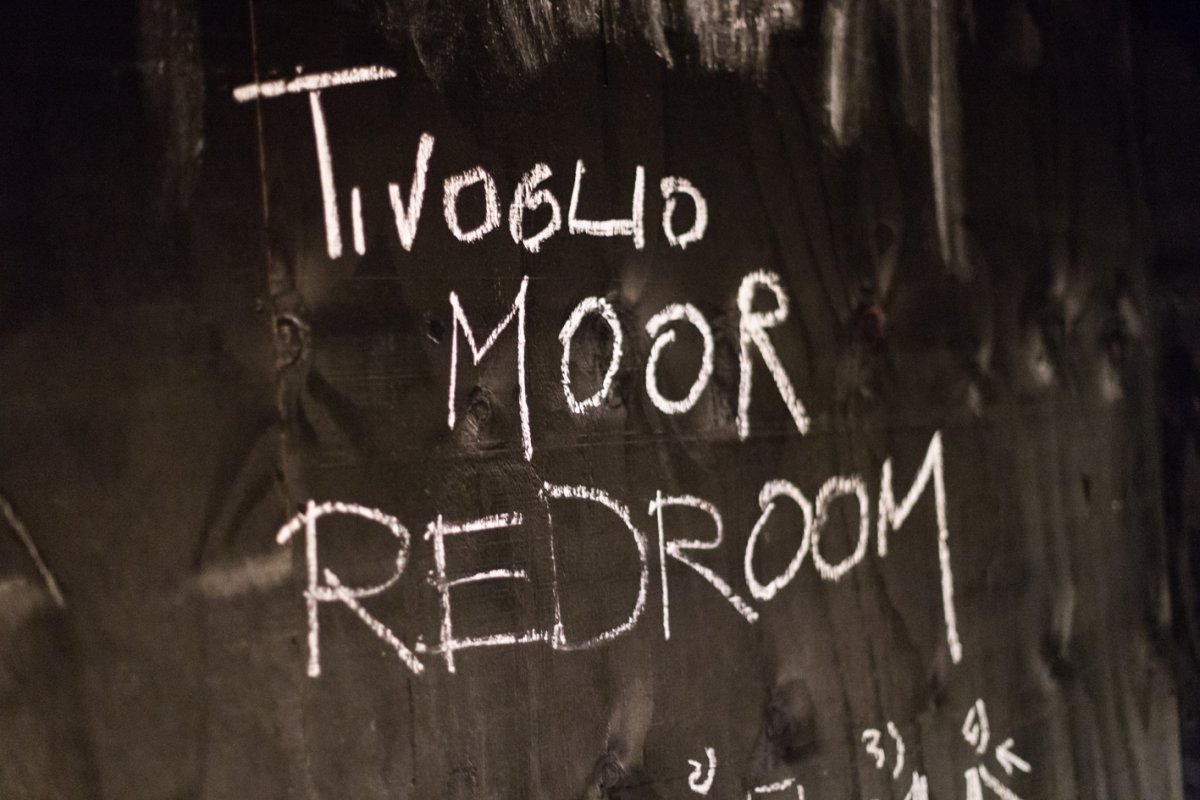 TIVOGLIO
MOOR
REDROOM
2) 3) 4)